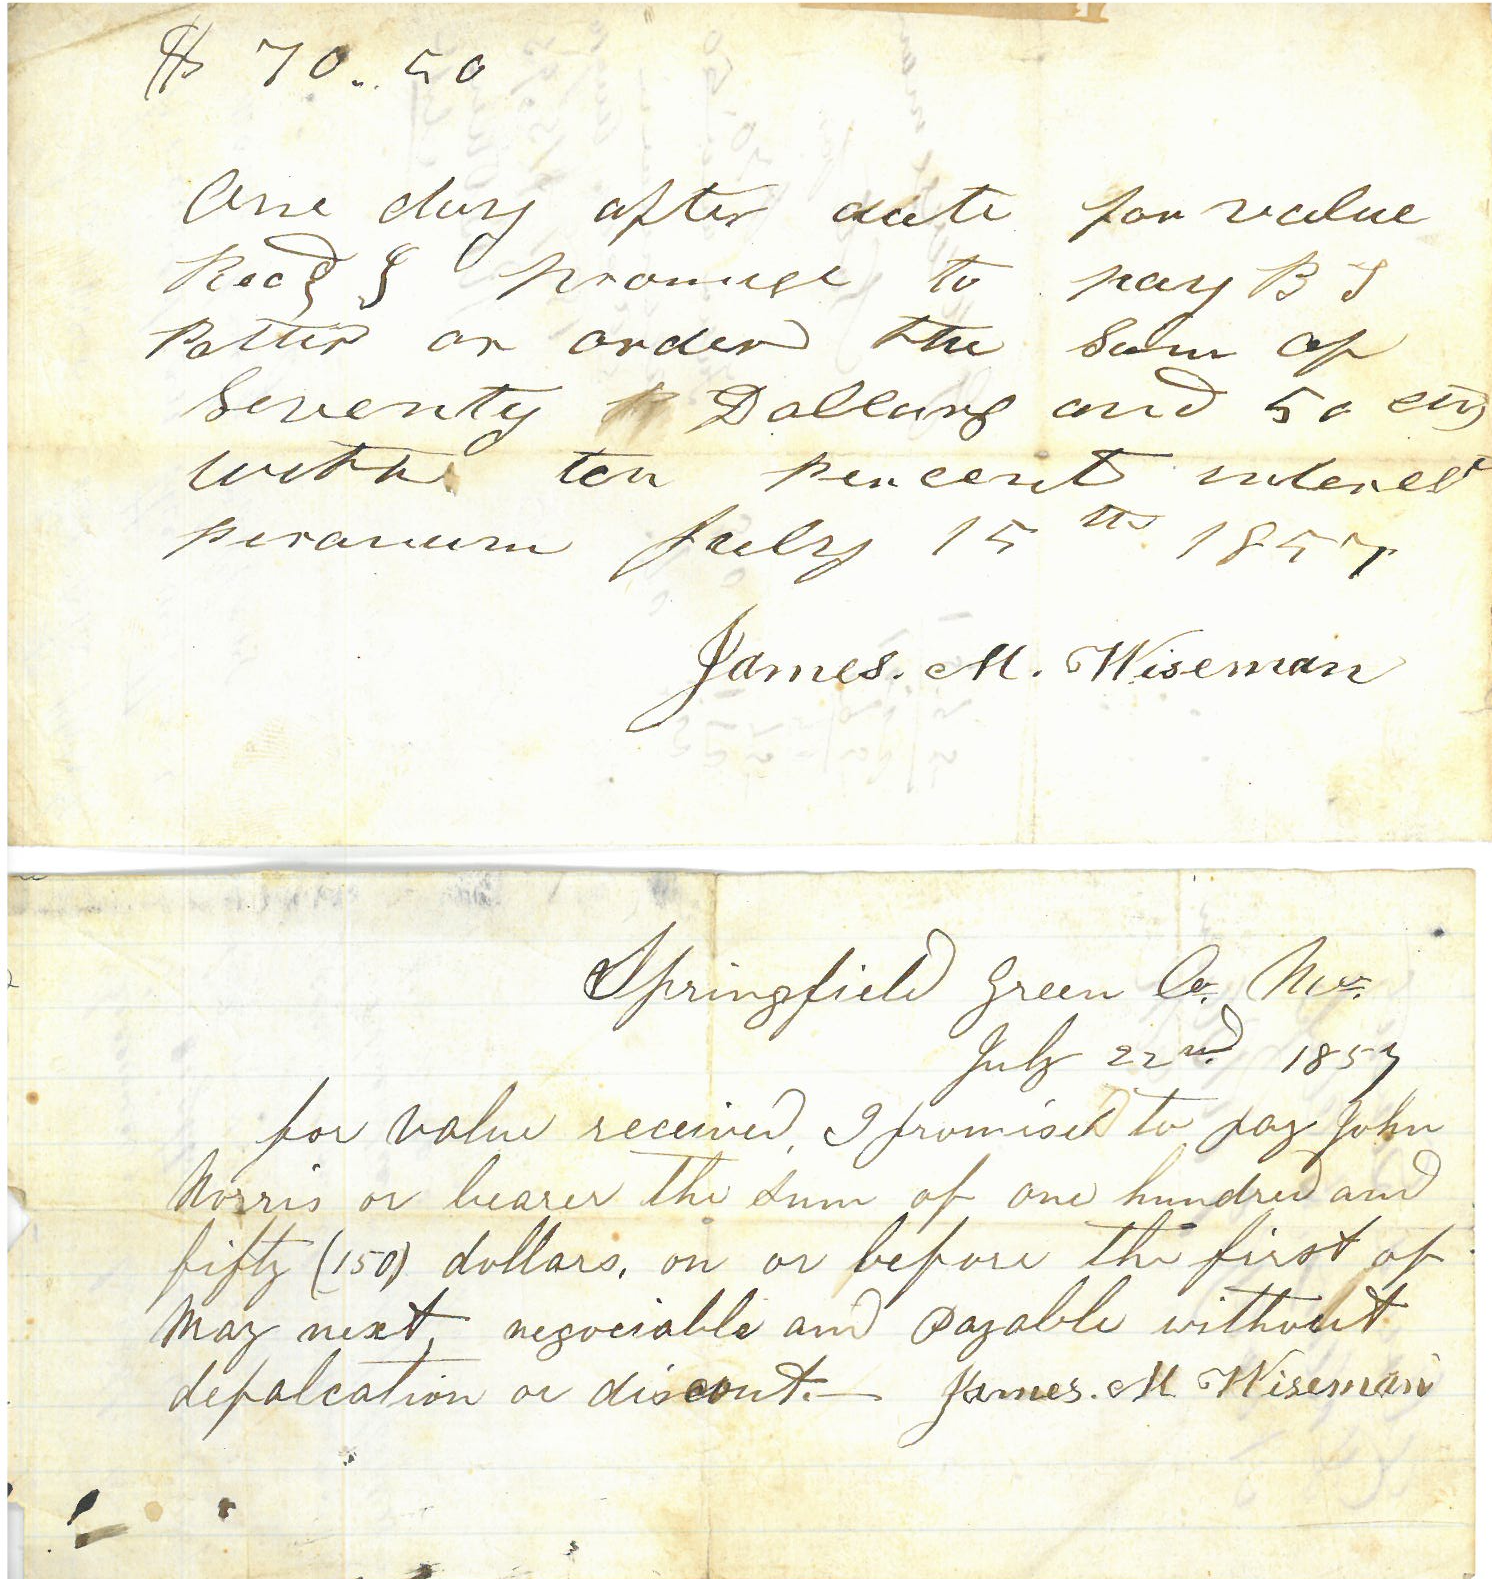 $ 70.50
One day after date for value
Recd I promise to pay B J
Potter or order the Sum of
Seventy Dollars and 50 cts
with ten percent interest
peranum July 15th 1857
James. M. Wiseman
Springfield Green Co. Mo.
July 22nd. 1857
for value received, I promise to pay John
Norris or bearer the sum of one hundred and
fifty (150) dollars, on or before the first of
May next, negociable and payable without
defalcation or discout.— James. M Wiseman